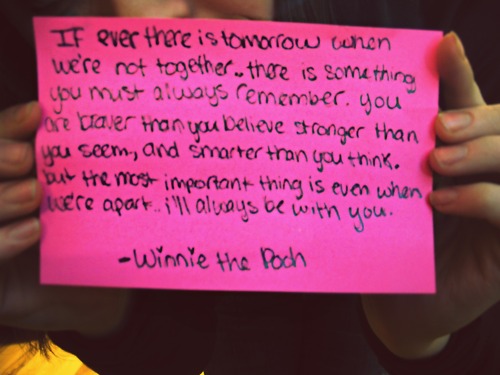 If ever there is tomorrow when
we're not together.. there is something
you must always remember. you
are braver than you believe stronger than
you seem, and smarter than you think.
but the most important thing is even when
we're apart.. i'll always be with you.
-Winnie the Pooh